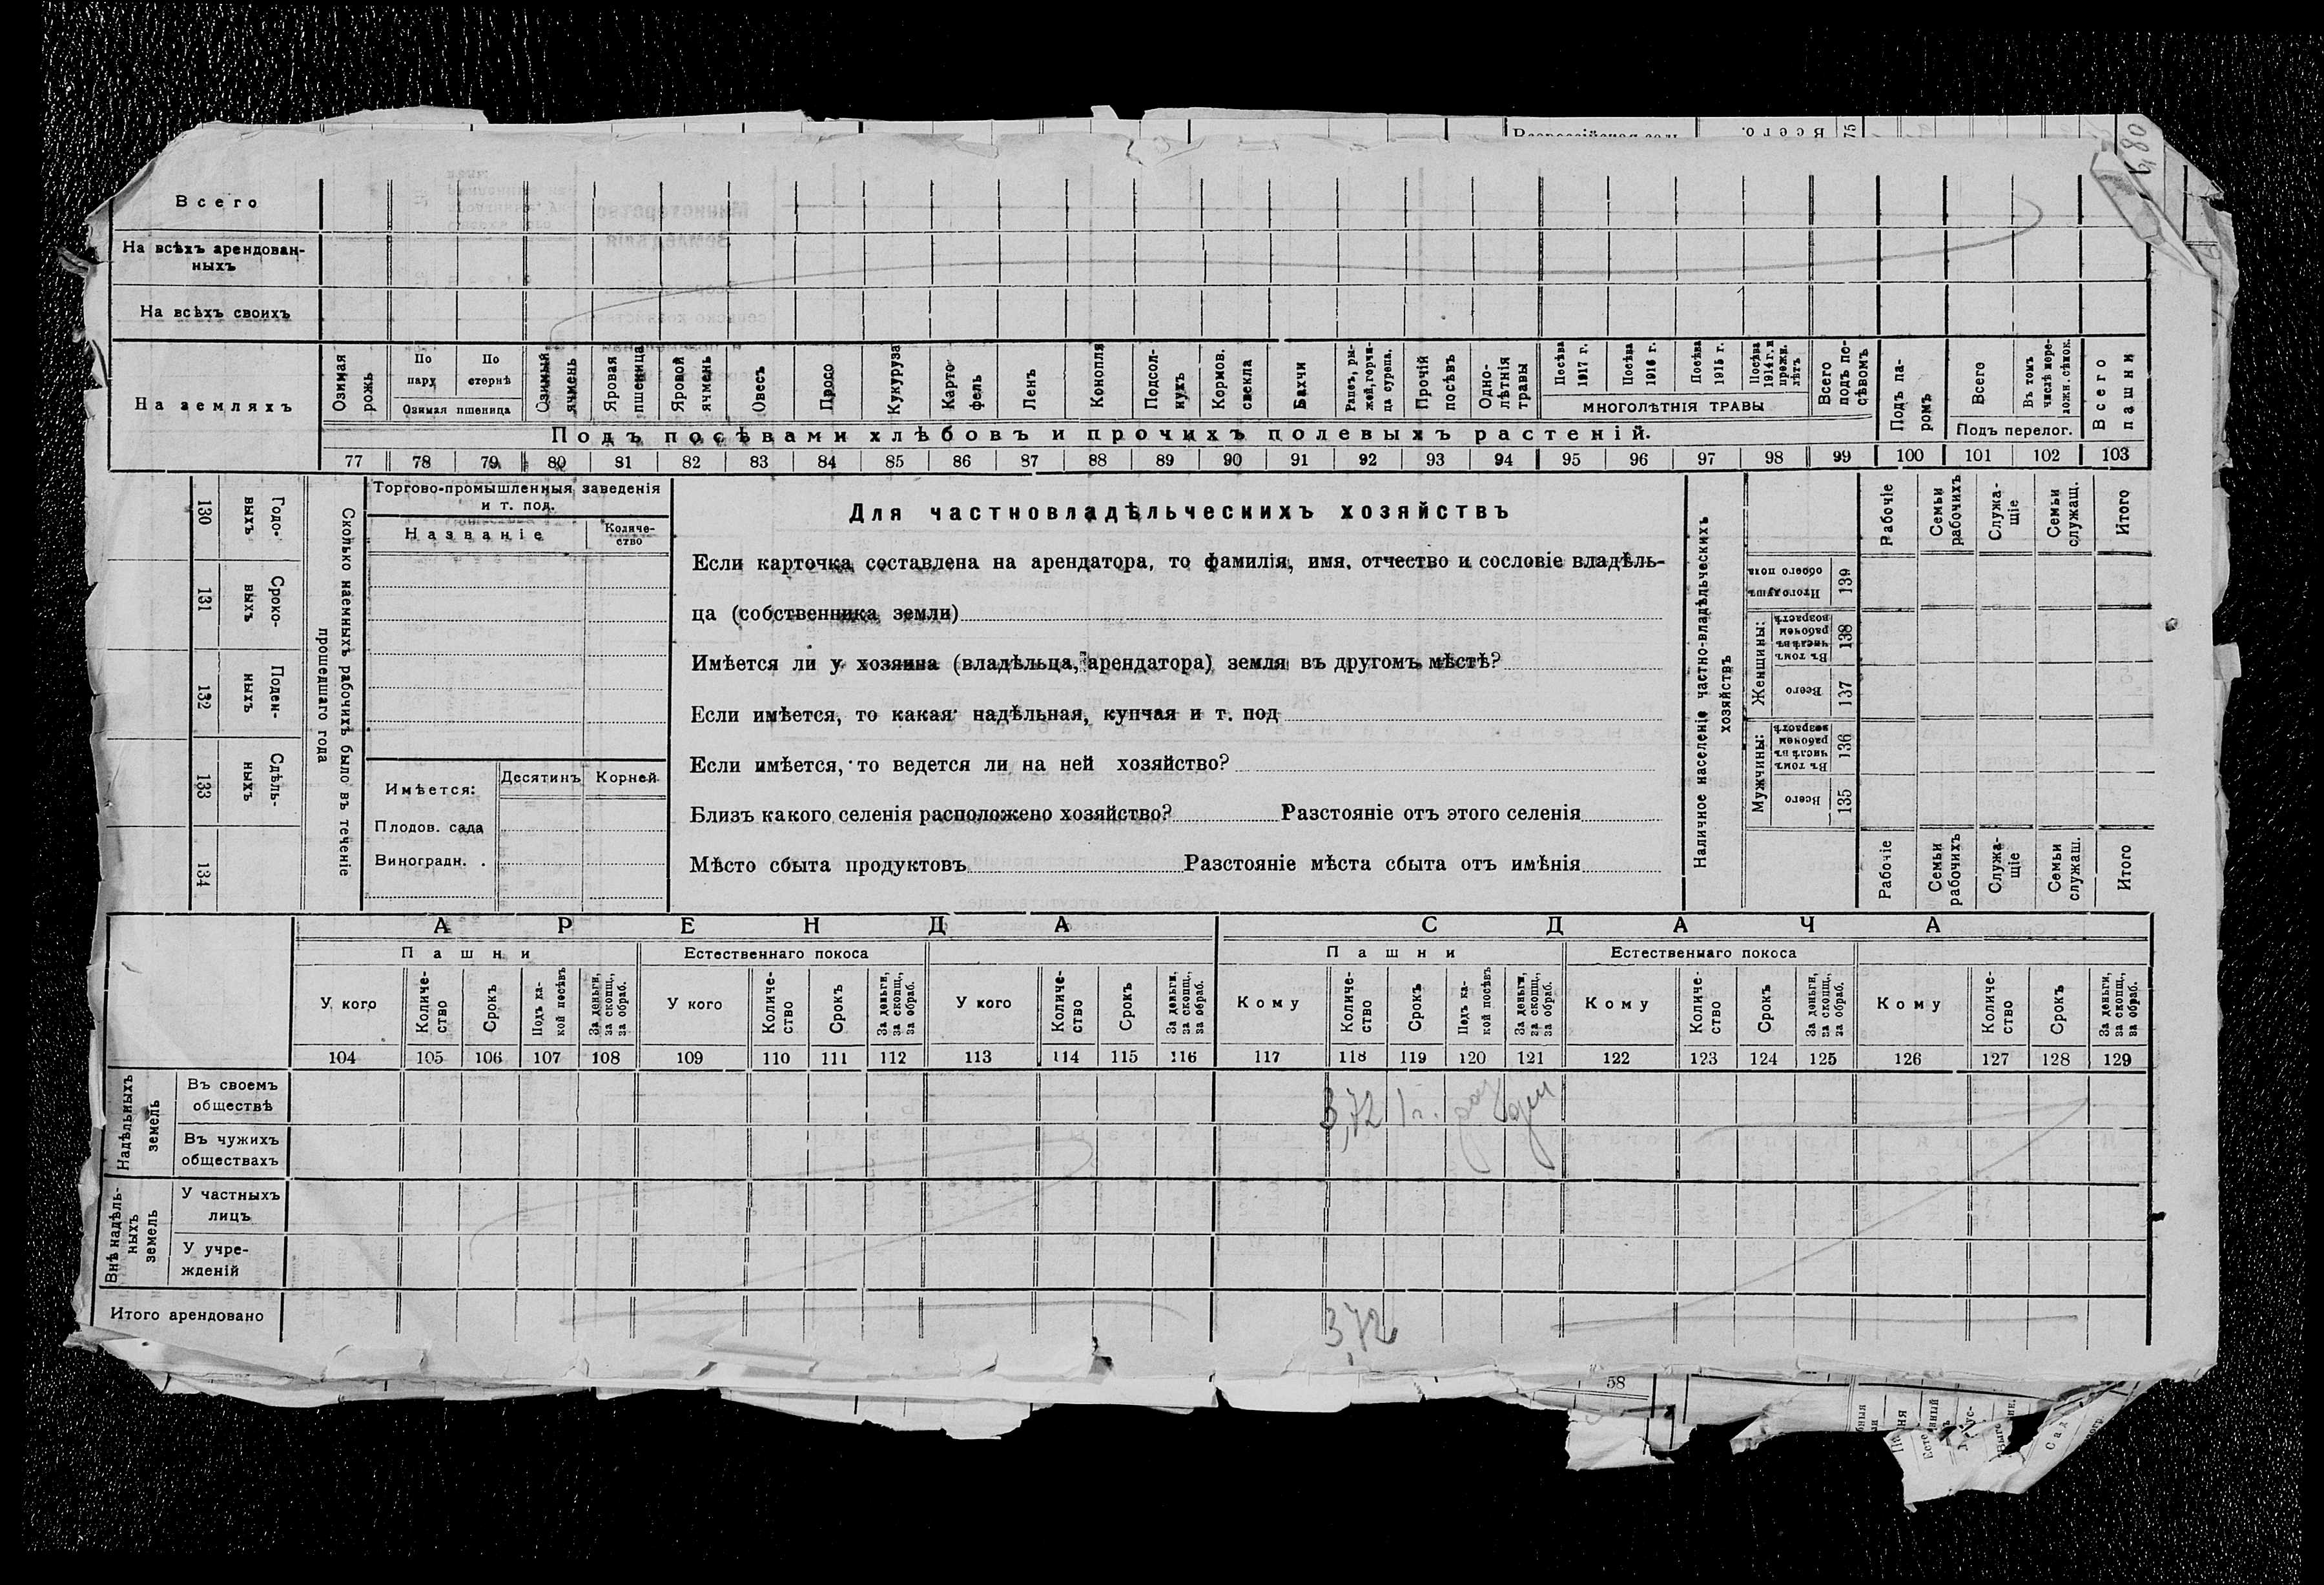 Всего
На всѣхъ арендован-
ныхъ
На всѣхъ своихъ
На земляхъ
Озимая рожь
По пару
По стернѣ
Озимая пшеница
Озимый ячмень
Яровая пшеница
Яровой ячмень
Овесъ
Просо
Кукуруза
Карто-
фель
Ленъ
Конопля
Подсол-
нухъ
Кормов.
свекла
Бахчи
Рапсъ, ры-
жей, горчи-
ца сурепа.
Прочій
посѣвъ
Одно-
лѣтнія
травы
Посѣва
1917 г.
Посѣва
1916 г.
Посѣва
1915 г.
Посѣва
1914 г. и
прежн.
лѣтъ
МНОГОЛѢТНІЯ ТРАВЫ
Всего
подъ по-
сѣвомъ
Подъ па-
ромъ
Всего
Въ томъ
числѣ пере-
ложн. сѣнок.
Подъ перелог.
Всего
пашни
Подъ посѣвами хлѣбовъ и прочихъ полевыхъ растеній.
77 78 79 80 81 82 83 84 85 86 87 88 89 90 91 92 93 94 95 96 97 98 99 100 101 102 103
130 Годо-
выхъ
131 Сроко-
выхъ
132 Поден-
ныхъ
133 Сдѣль-
ныхъ
134
Сколько наемныхъ рабочихъ было въ теченіе
прошедшаго года
Торгово-промышленныя заведенія
и т. под.
Названіе
Количе-
ство
Имѣется:
Десятинъ Корней
Плодов. сада
Виноградн. .
Для частновладѣльческихъ хозяйствъ
Если карточка составлена на арендатора, то фамилія, имя, отчество и сословіе владѣль-
ца (собственника земли)
Имѣется ли у хозяина (владѣльца, арендатора) земля въ другомъ мѣстѣ?
Если имѣется, то какая: надѣльная, купчая и т. под
Если имѣется, то ведется ли на ней хозяйство?
Близъ какого селенія расположено хозяйство? Разстояніе отъ этого селенія
Мѣсто сбыта продуктовъ Разстояніе мѣста сбыта отъ имѣнія
Наличное населеніе частно-владѣльческихъ
хозяйствъ
Рабочіе
Семьи
рабочихъ
Служа-
щіе
Семьи
служащ.
Итого
Итого душъ
обоего пола 139
Женщины:
Въ томъ
числѣ въ
рабочем
возрастѣ 138
Всего 137
Мужчины:
Въ томъ
числѣ въ
рабочем
возрастѣ 136
Всего 135
Рабочіе
Семьи
рабочихъ
Служа-
щіе
Семьи
служащ.
Итого
АРЕНДА
СДАЧА
Пашни
Естественнаго покоса
Пашни
Естественнаго покоса
У кого
Количе-
ство
Срокъ
Подъ ка-
кой посѣвъ
За деньги,
за скопщ.,
за обраб.
У кого
Количе-
ство
Срокъ
За деньги,
за скопщ.,
за обраб.
У кого
Количе-
ство
Срокъ
За деньги,
за скопщ.,
за обраб.
Кому
Количе-
ство
Срокъ
Подъ ка-
кой посѣвъ
За деньги,
за скопщ.,
за обраб.
Кому
Количе-
ство
Срокъ
За деньги,
за скопщ.,
за обраб.
Кому
Количе-
ство
Срокъ
За деньги,
за скопщ.,
за обраб.
104 105 106 107 108 109 110 111 112 113 114 115 116 117 118 119 120 121 122 123 124 125 126 127 128 129
Надѣльныхъ
земель
Въ своемъ
обществѣ
3,72 1 г.
Въ чужихъ
обществахъ
Внѣ надѣль-
ныхъ
земель
У частныхъ
лицъ
У учре-
жденій
Итого арендовано
3,72
58